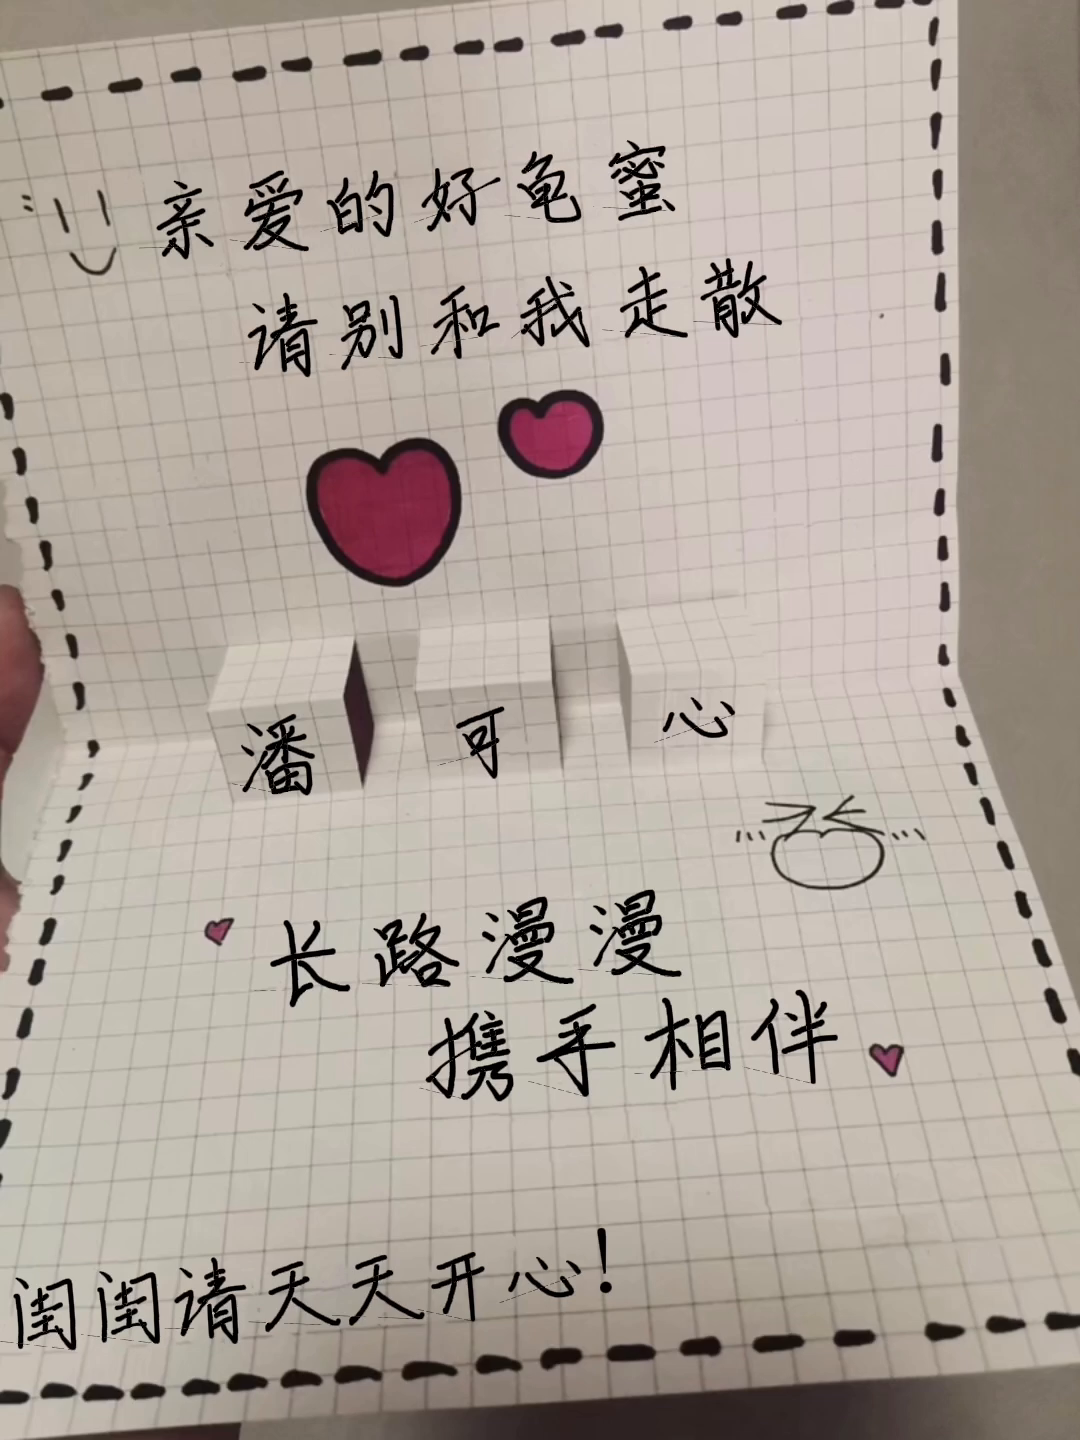 亲爱的好龟蜜
请别和我走散
潘可心
长路漫漫
携手相伴
闺闺请天天开心!